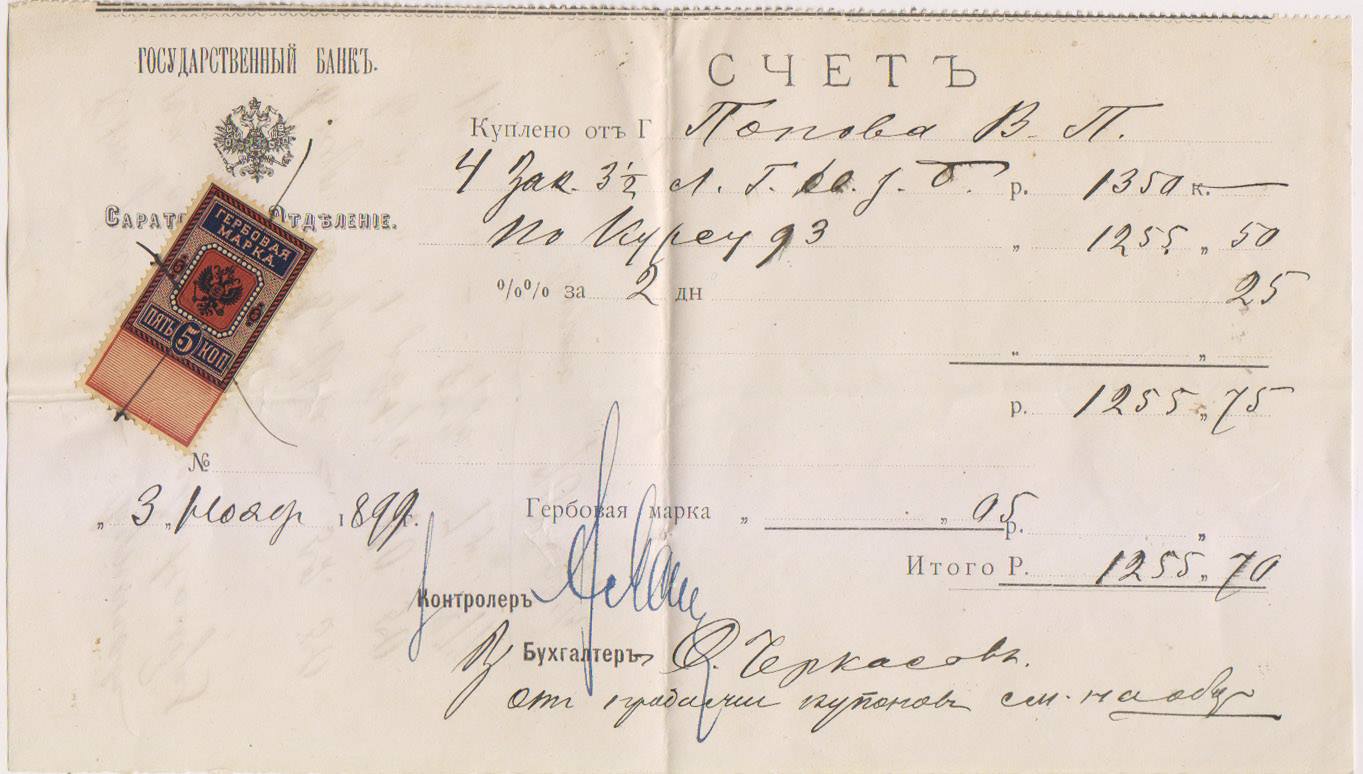 ГОСУДАРСТВЕННЫЙ БАНКЪ.
САРАТО ОТДѢЛЕНІЕ.
ГЕРБОВАЯ
МАРКА
5 5
ПЯТЬ 5 КОП
№
„ 3 „ Нояб 1899 г.
СЧЕТЪ
Куплено отъ Г Попова В. П.
4 Зак. 3½ л. Г. р. 1350 к.
по Курсу 93 „ 1255 „ 50
%%% за 2 дн 25
„ „
р. 1255 „ 75
Гербовая марка „ „ 05 р. „
Итого Р. 1255 „ 70
Контролеръ
Бухгалтеръ О. Черкасовъ.
от купонов см. на обор